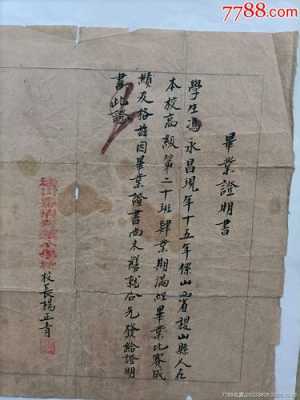 7788.com
畢業證明書
學生馮永昌現年十五年係山西省稷山縣人在
本校高級第二十班肄業期滿經畢業比賽成
績及格茲因畢業證書尚未繕就合先發給證明
書此證
校長楊正青